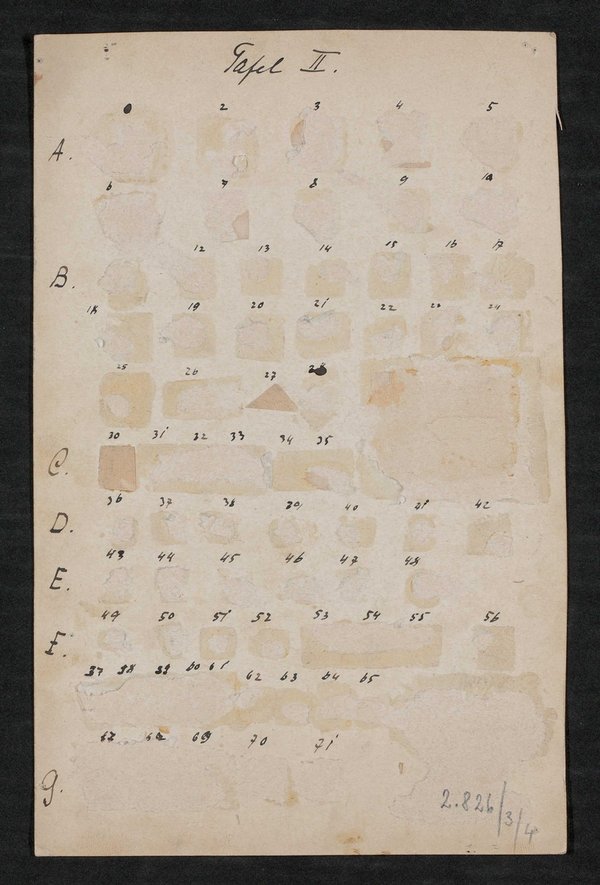 Tafel II.
2 3 4 5
A.
6 7 8 9 10
12 13 14 15 16 17
B.
18 19 20 21 22 23 24
25 26 27 28
30 31 32 33 34 35
C.
36 37 38 39 40 41 42
D.
43 44 45 46 47 48
E.
49 50 51 52 53 54 55 56
F.
57 58 59 60 61 62 63 64 65
68 69 70 71
g.
2.826/3/4